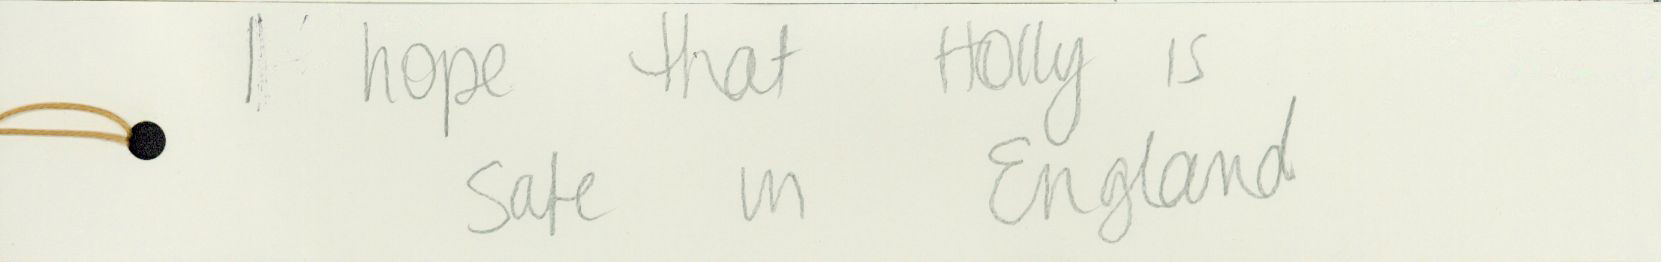 I hope that Holly is
safe in England